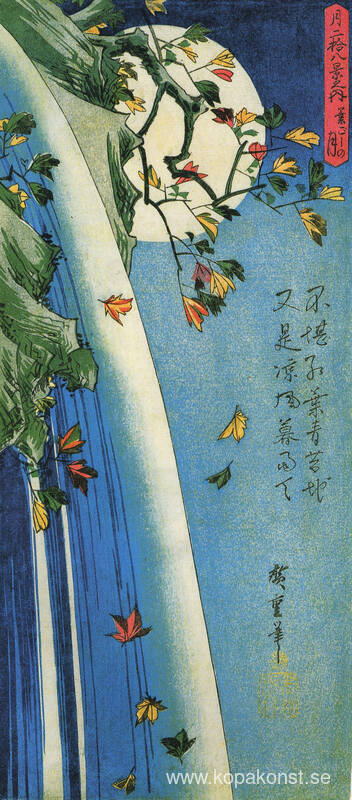 月二拾八景之内
葉ごしの
月
不堪紅葉青苔地
又是涼風暮雨天
廣重筆
www.kopakonst.se